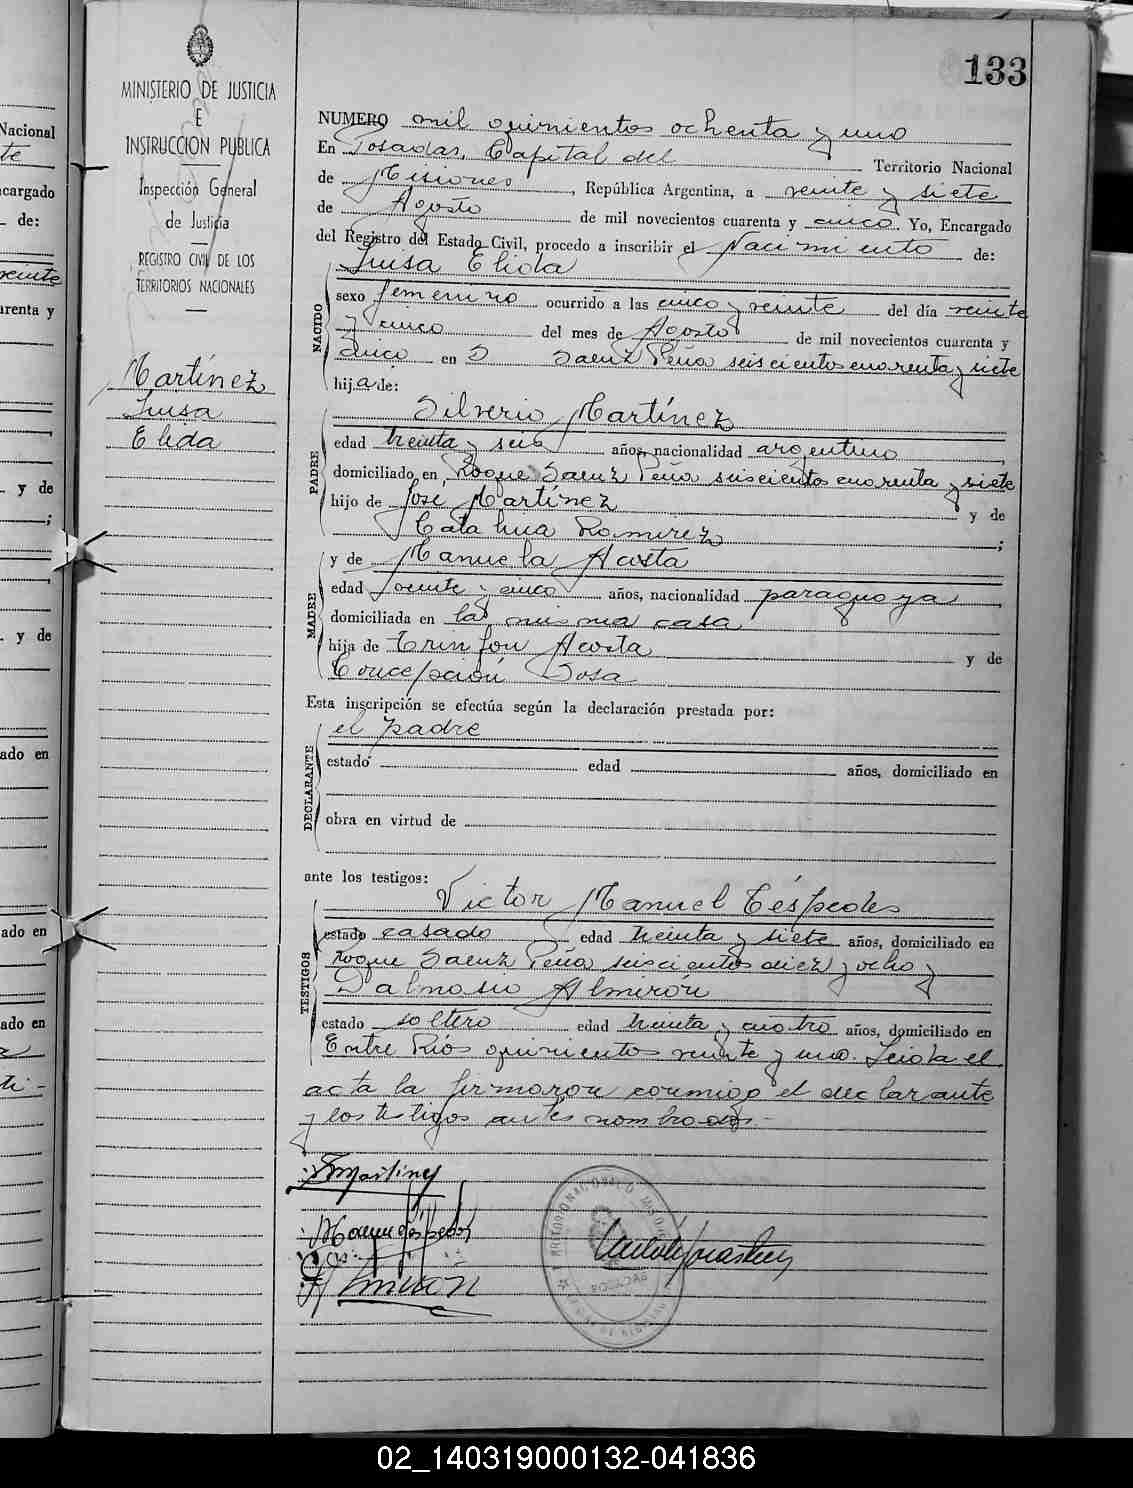 133
MINISTERIO DE JUSTICIA
E
INSTRUCCION PUBLICA
Inspección General
de Justicia
REGISTRO CIVIL DE LOS
TERRITORIOS NACIONALES
Martínez
Luisa
Elida
NUMERO mil quinientos ochenta y uno
En Posadas, Capital del Territorio Nacional
de Misiones, República Argentina, a veinte y siete
de Agosto de mil novecientos cuarenta y cinco. Yo, Encargado
del Registro del Estado Civil, procedo a inscribir el Nacimiento de:
Luisa Elida
NACIDO
sexo femenino ocurrido a las cinco y veinte del día veinte
y cinco del mes de Agosto de mil novecientos cuarenta y
cinco en Saenz Peña seiscientos cuarenta y siete
hija de:
Silverio Martínez
PADRE
edad treinta y seis años, nacionalidad argentino,
domiciliado en Roque Saenz Peña seiscientos cuarenta y siete
hijo de José Martínez y de
Catalina Ramirez;
y de Manuela Acosta
MADRE
edad veinte y cinco años, nacionalidad paraguaya
domiciliada en la misma casa
hija de Acosta y de
Concepción Sosa
Esta inscripción se efectúa según la declaración prestada por:
el padre
DECLARANTE
estado edad años, domiciliado en
obra en virtud de
ante los testigos:
Victor Manuel Céspedes
TESTIGOS
estado casado edad treinta y siete años, domiciliado en
Roque Saenz Peña seiscientos diez y ocho y
Dalmasio Almirón
estado soltero edad treinta y cuatro años, domiciliado en
Entre Ríos quinientos veinte y uno. Leida el
acta la firmaron conmigo el declarante
y los testigos antes nombrados.-
SMartinez
POSADAS
Nacional
cargado
de:
veinte
arenta y
y de
;
y de
ado en
ado en
ado en
02_140319000132-041836